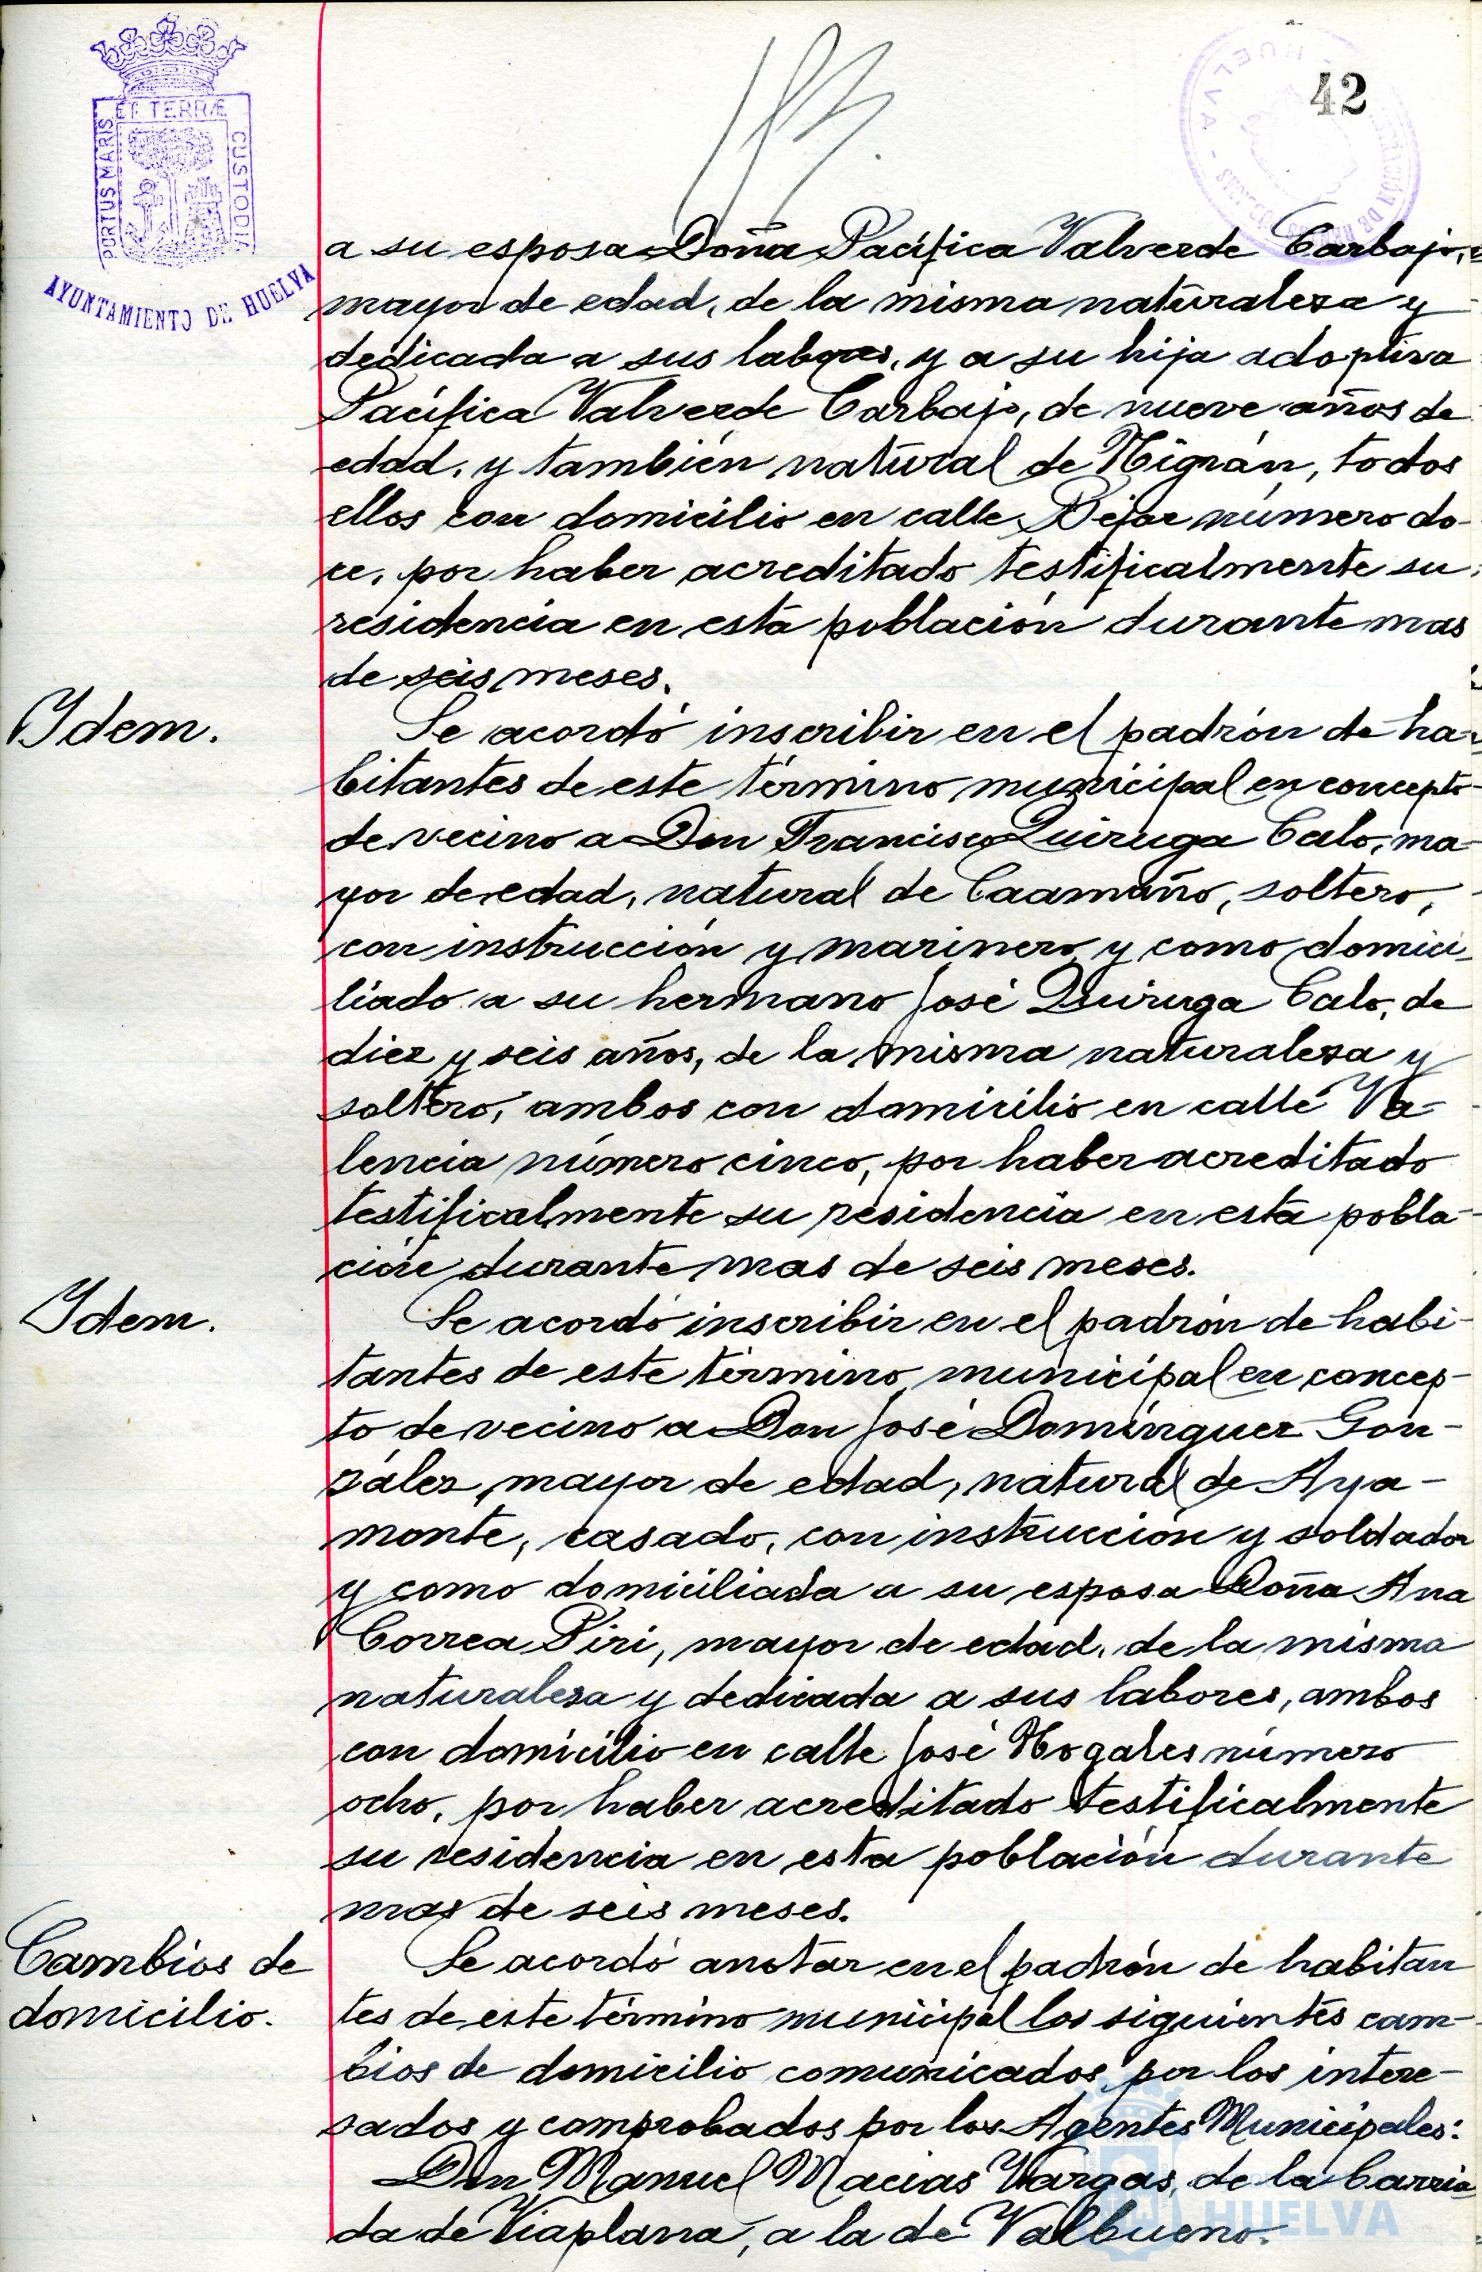 42
ET TERRÆ
PORTUS MARIS
CUSTODIA
AYUNTAMIENTO DE HUELVA
a su esposa Doña Pacífica Valverde Carbajo,
mayor de edad, de la misma naturaleza y
dedicada a sus labores, y a su hija adoptiva
Pacífica Valverde Carbajo, de nueve años de
edad, y también natural de Nigrán, todos
ellos con domicilio en calle Bejar número do-
ce, por haber acreditado testificalmente su
residencia en esta población durante mas
de seis meses.
Idem.
Se acordó inscribir en el padrón de ha-
bitantes de este término municipal en concepto
de vecino a Don Francisco Quiruga Calo, ma-
yor de edad, natural de Caamaño, soltero,
con instrucción y marinero y como domici-
liado a su hermano José Quiruga Calo, de
diez y seis años, de la misma naturaleza y
soltero, ambos con domicilio en calle Va-
lencia número cinco, por haber acreditado
testificalmente su residencia en esta pobla-
ción durante mas de seis meses.
Idem.
Se acordó inscribir en el padrón de habi-
tantes de este término municipal en concep-
to de vecino a Don José Domínguez Gon-
zález, mayor de edad, natural de Aya-
monte, casado, con instrucción y soldador
y como domiciliada a su esposa Doña Ana
Correa Piri, mayor de edad, de la misma
naturaleza y dedicada a sus labores, ambos
con domicilio en calle José Nogales número
ocho, por haber acreditado testificalmente
su residencia en esta población durante
mas de seis meses.
Cambios de
domicilio.
Se acordó anotar en el padrón de habitan
tes de este término municipal los siguientes cam-
bios de domicilio comunicados por los intere-
sados y comprobados por los Agentes Municipales:
Don Manuel Macias Vargas, de la barria
da de Viaplana, a la de Valbueno.
HUELVA